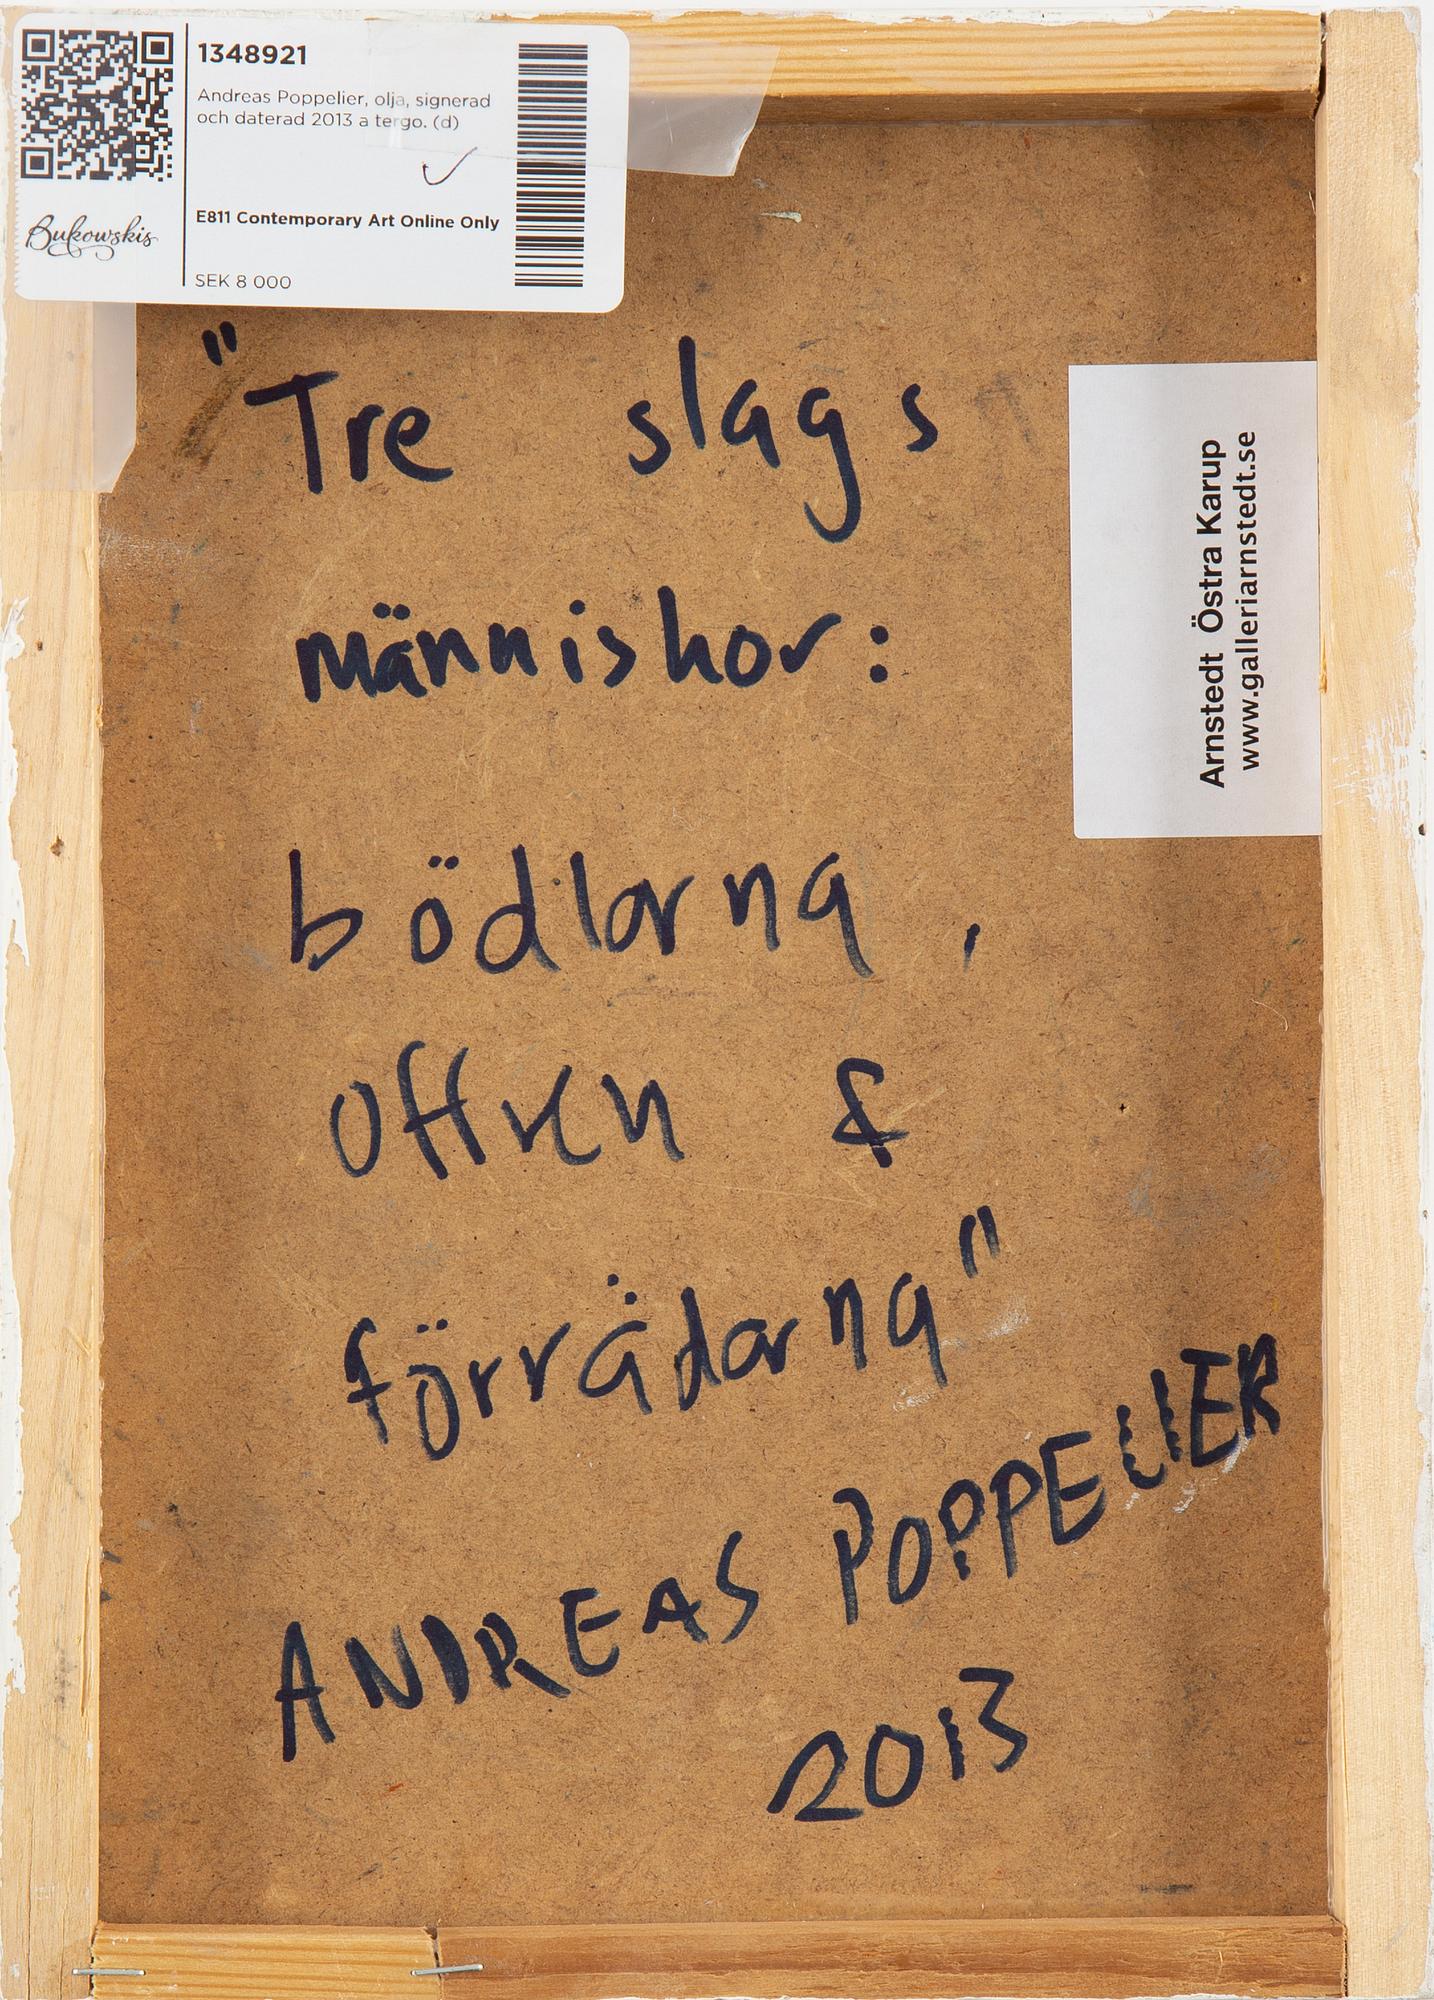 1348921
Andreas Poppelier, olja, signerad
och daterad 2013 a tergo. (d)
Bukowskis
E811 Contemporary Art Online Only
SEK 8 000
"Tre slags
människor:
bödlarna,
offren &
förrädarna"
ANDREAS POPPELIER
2013
Arnstedt Östra Karup
www.galleriarnstedt.se